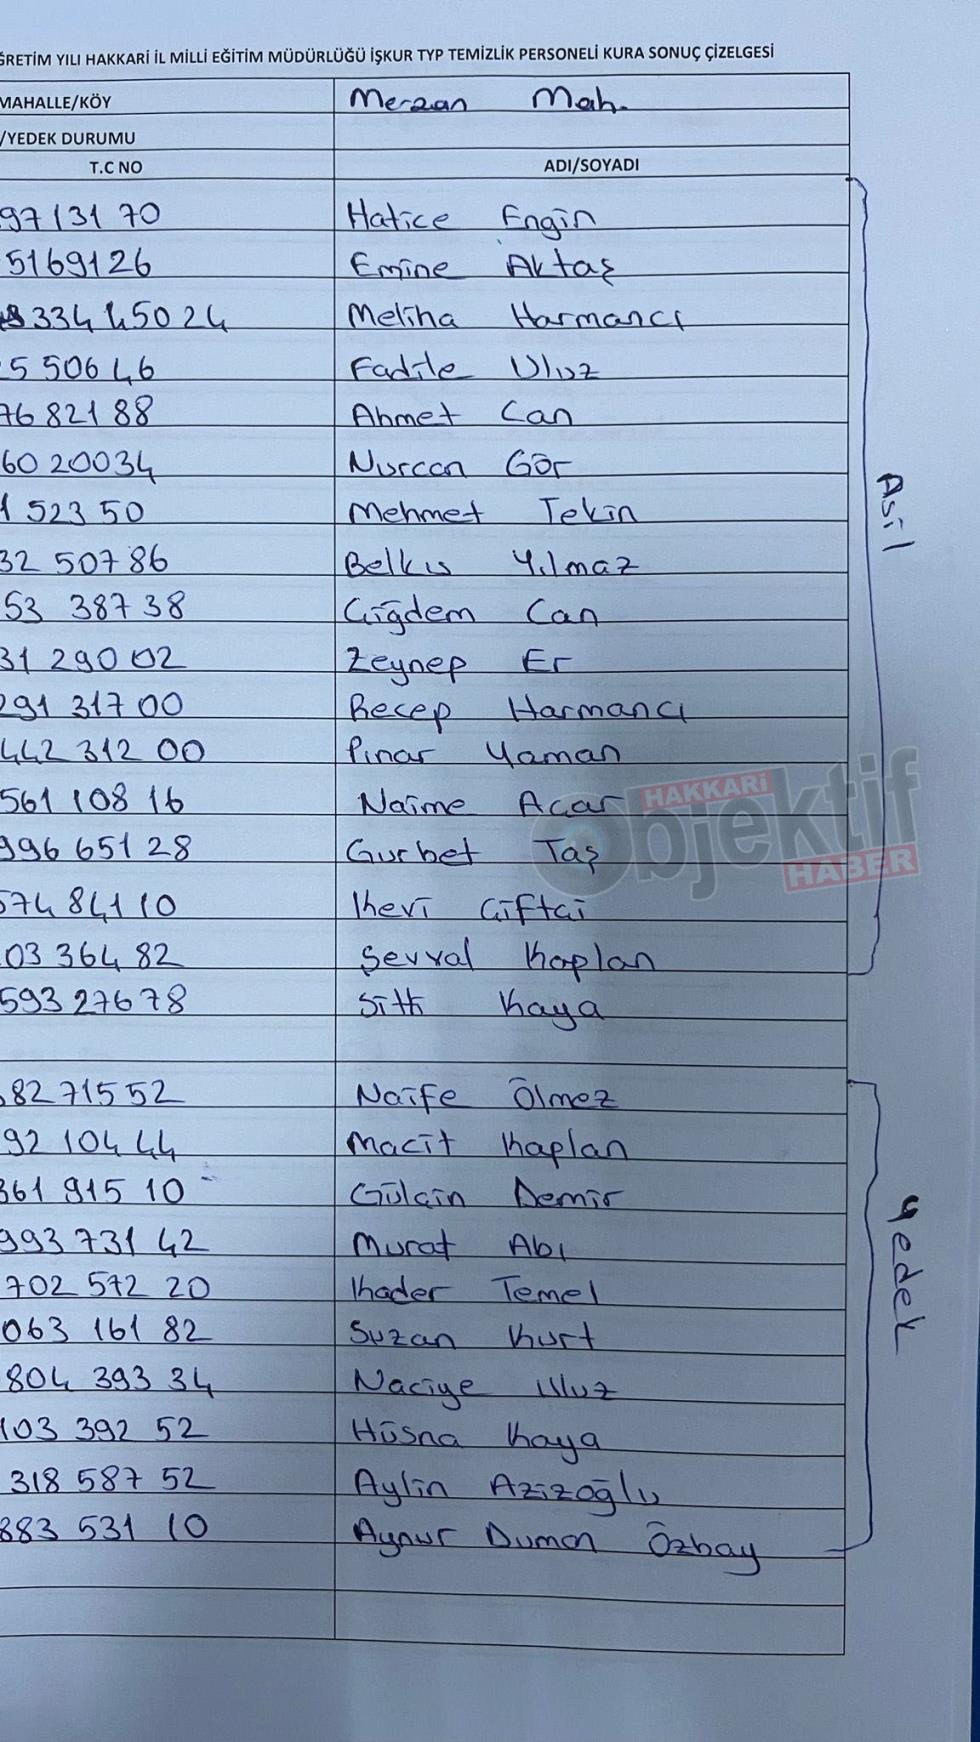 ĞRETİM YILI HAKKARİ İL MİLLİ EĞİTİM MÜDÜRLÜĞÜ İŞKUR TYP TEMİZLİK PERSONELİ KURA SONUÇ ÇİZELGESİ
MAHALLE/KÖY Merzan Mah.
/YEDEK DURUMU
T.C NO ADI/SOYADI
97131 70 Hatice Engin
5169126 Emine Aktaş
334 45024 Meliha Harmancı
5 506 46 Fadile Uluz
76 821 88 Ahmet Can
60 20034 Nurcan Gör
1 523 50 Mehmet Tekin
32 50786 Belkıs Yılmaz
53 387 38 Çiğdem Can
31 290 02 Zeynep Er
291 317 00 Recep Harmancı
442 312 00 Pınar Yaman
561 108 16 Naime Acar
996 651 28 Gurbet Taş
574 841 10 Kevi Çiftçi
03 364 82 Şevval Kaplan
593 276 78 Sitti Kaya
Asil
82 715 52 Naife Ölmez
92 104 44 Macit Kaplan
361 915 10 Gülçin Demir
993 731 42 Murat Abı
702 572 20 Kader Temel
063 161 82 Suzan Kurt
804 393 34 Naciye Uluz
103 392 52 Hüsna Kaya
318 587 52 Aylin Azizoğlu
883 531 10 Aynur Duman Özbay
Yedek
HAKKARİ
Objektif
HABER